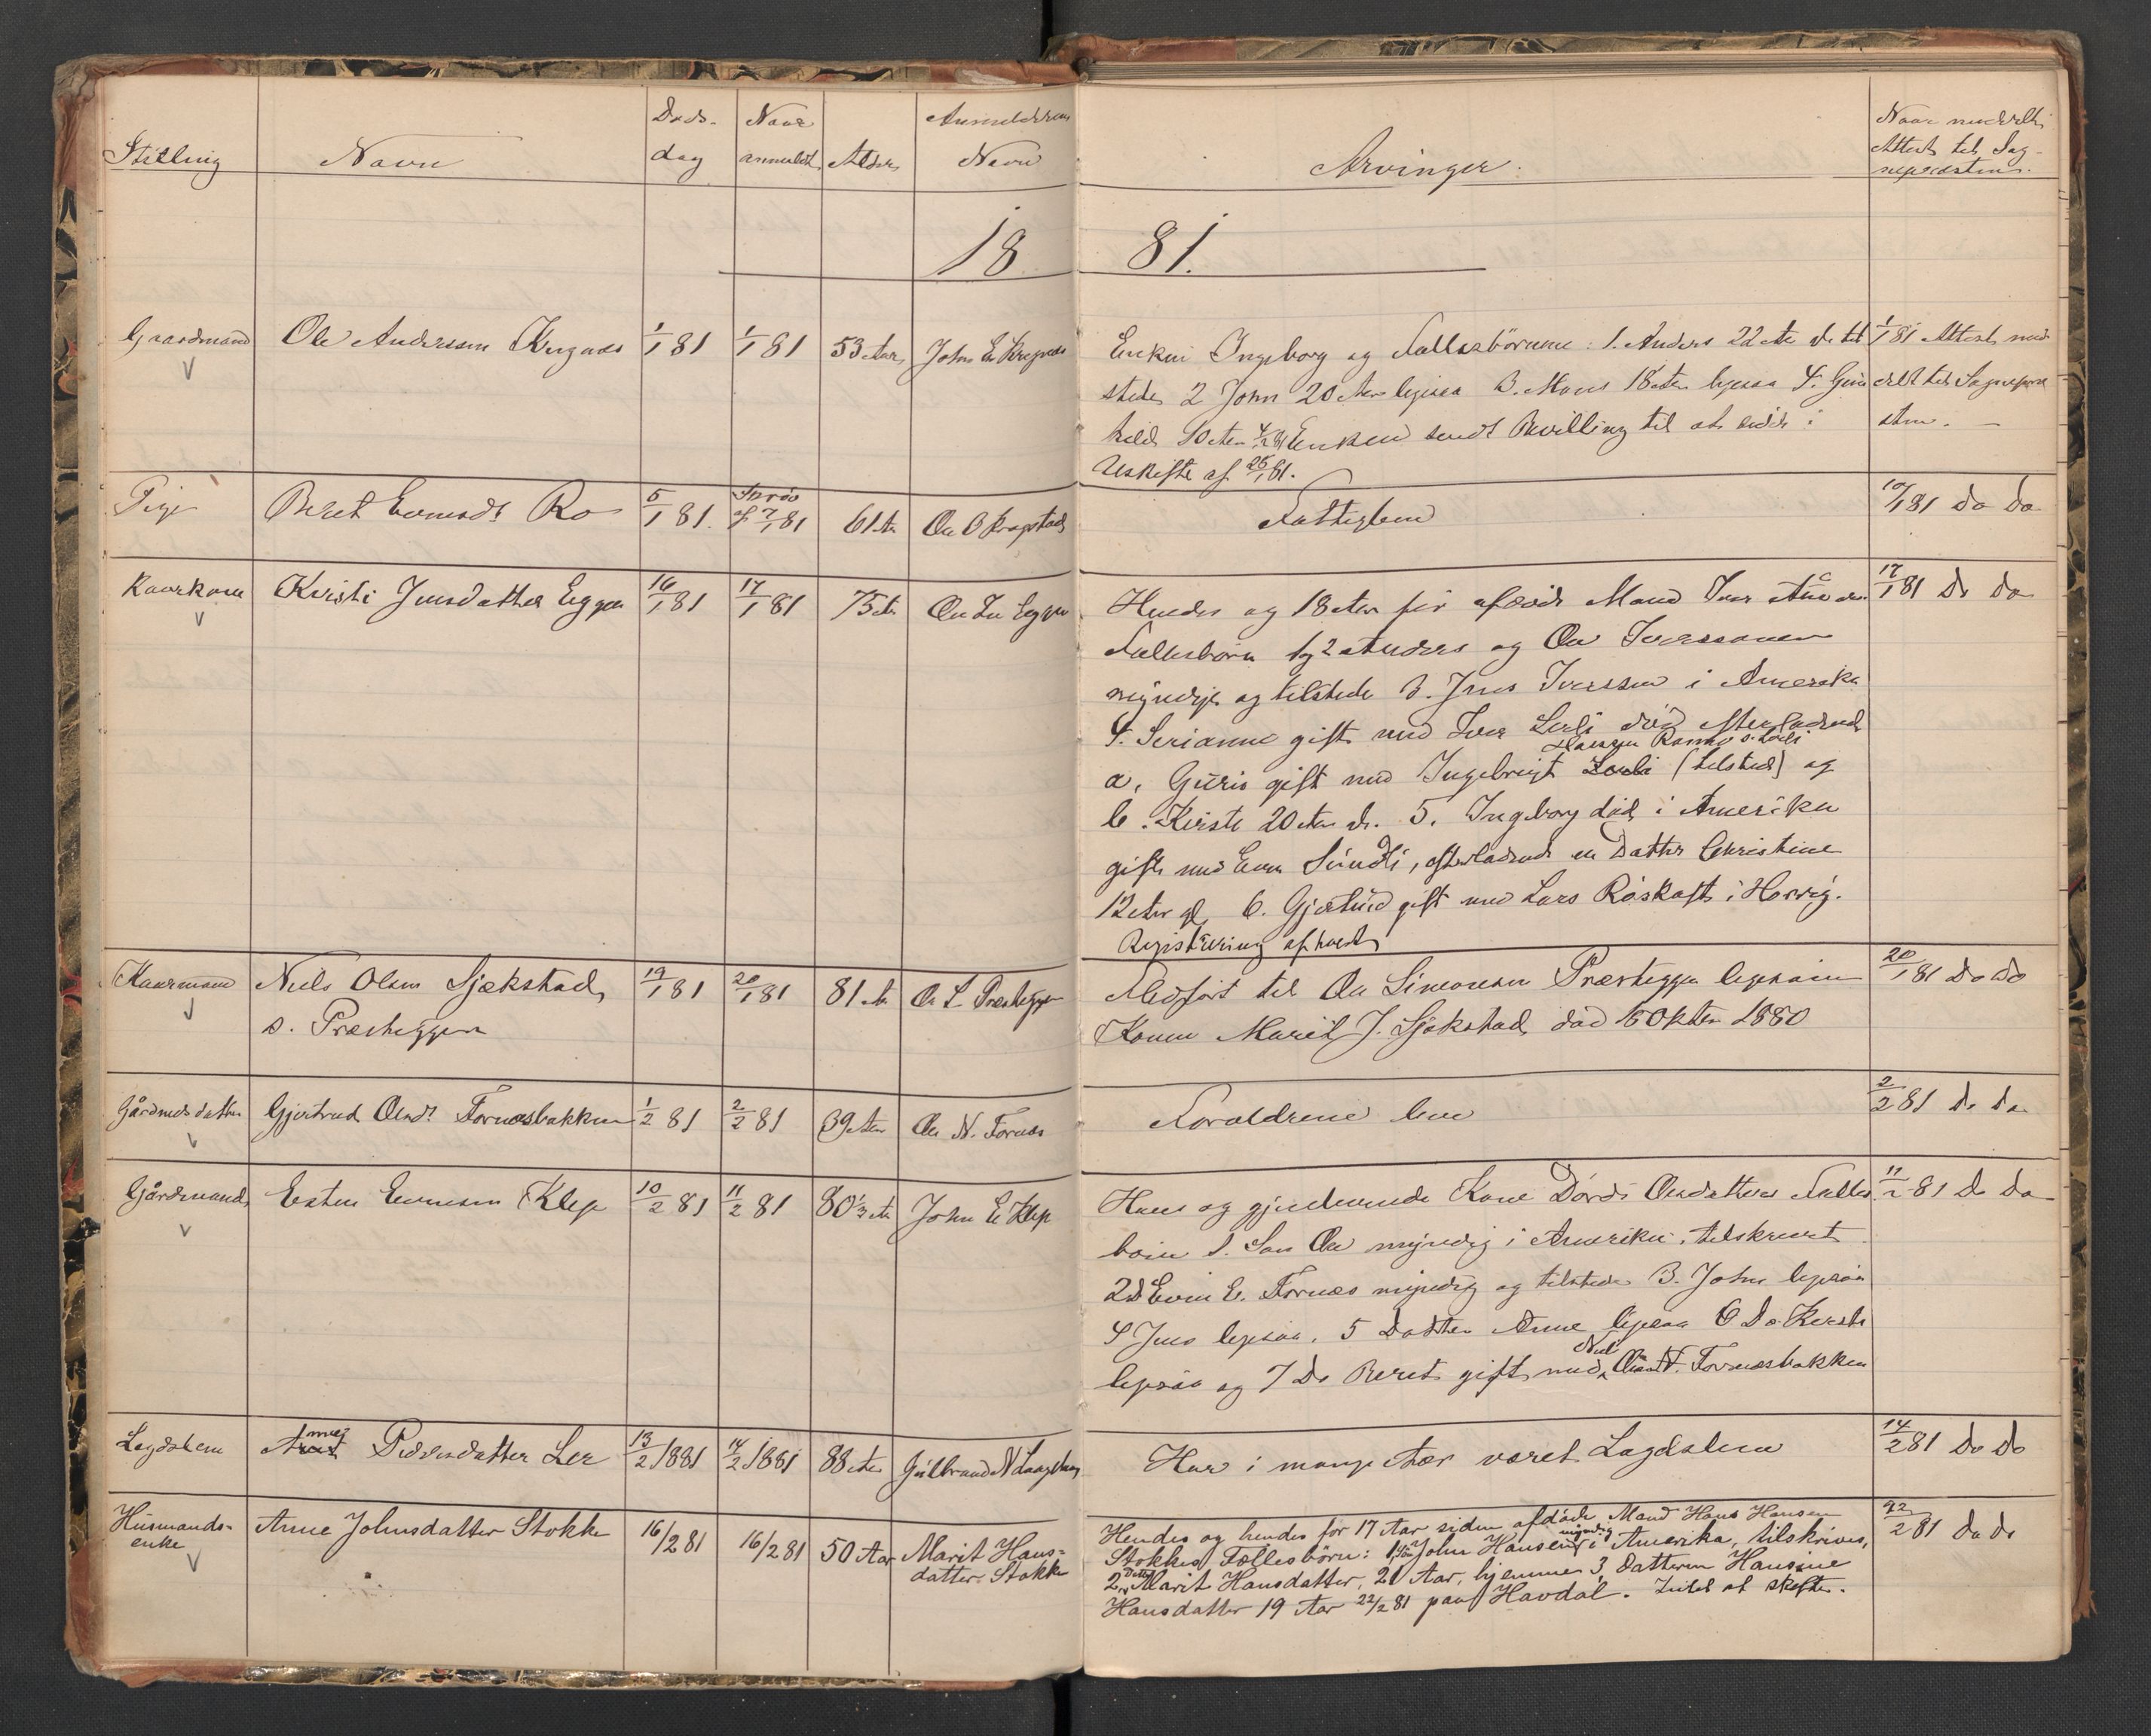 Stilling Navn Døds- dag Naar anmeldt Alder Anmelderens Navn Arvinger. Naar meddelt Attest til Sognepræsten.
18 81.
Gaardmand Ole Anderssen 1/1 81 1/1 81 53 Aar John E
Enken Ingeborg og Fællesbörnene: 1. Anders 22 Aar 1/1 81 Attest med-
stede 2 John 20 Aar ligesaa 3. Mons 18 Aar ligesaa 4. delt til Sognepræ
hild 10 Aar 4/2 81 Enken sendt Bevilling til at sidde i sten. —
Uskifte af 25/1 81.
Pige Beret Evensdt Ro 5/1 81. af 7/1 81 61 Aar Ole O Krogstad Fattiglem 10/1 81 Do Do
Kaarkone Kirsti Jensdatter Eggen 16/1 81 17/1 81 75 Aar Ole Eggen
Hendes og 18 Aar før afdøde Mand Iver 17/1 81 Do Do
Fællesbörn 1 og 2 Anders og Ole Iverssønner
myndige og tilstede 3. Jens Iverssen i Amerika
4. Serianne gift med Iver Lerli død efterladende
Hansen Ramlo s. Lerli
a, Guris gift med Ingebrigt Lerli (tilstede) og
b. Kirsti 20 Aar do. 5. Ingeborg død i Amerika
gift med Even Sundli, efterladende en Datter Christine
12 Aar gl. 6. Gjertrud gift med Lars Röskaft i Horrig.
Registrering afholdt
Kaarmand Niels Olsen Sjækstad, 19/1 81 20/1 81 81 Aar Ole S Præsteggen
s. Præsteggen
Ole Simonsen Præsteggen ligesom 20/1 81 Do Do
Konen Marit J. Sjøkstad død 16 Okter 1880
Gårdmdsdatter Gjertrud Olsdt Fornæsbakken 1/2 81 2/2 81 39 Aar Ole N. Fornæs Forældrene leve 2/2 81 Do Do
Gårdmand Esten Evensen Klep 10/2 81 11/2 81 80 1/2 Aar John E Klep
Hans og gjenlevende Kone Dördi Olsdatters Fælles 11/2 81 Do Do
börn 1. Sön Ole myndig i Amerika. tilskrevet
2 Do Even E. Fornæs myndig og tilstede 3. John ligesaa
4 Jens ligesaa. 5 Datter Anne ligesaa 6 Do Kirsti
ligesaa og 7 Do Beret gift med Niels Fornæsbakken
Lægdslem Pedersdatter Ler 13/2 1881 14/2 1881 88 Aar Gulbrand N Har i mange Aar været Lægdslem 14/2 81 Do Do
Husmands-
enke
Anne Johnsdatter Stokke 16/2 81 16/2 81 50 Aar Marit Hans-
datter Stokke
Hendes og hendes for 17 Aar siden afdøde Mand Hans Hansen 22/2 81 Do Do
Stokkes Fællesbörn: 1, Sön John Hansen myndig i Amerika, tilskrives,
2, Datter Marit Hansdatter, 21 Aar, hjemme 3, Datteren Hansine
Hansdatter 19 Aar 22/2 81 paa Havdal. Intet at skifte.